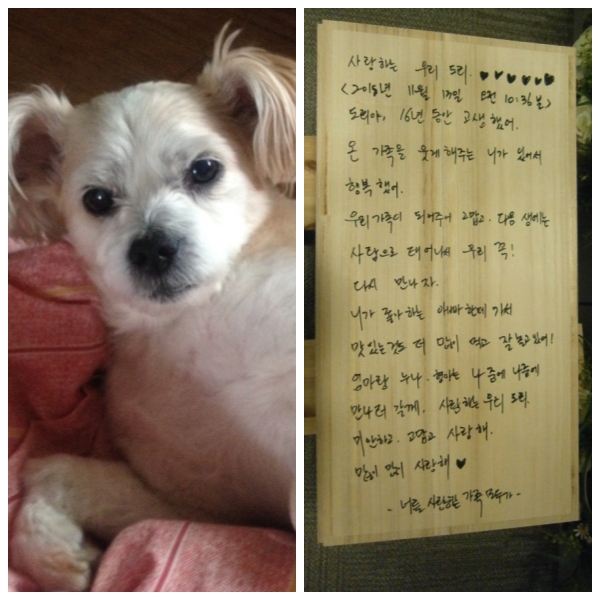 사랑하는 우리 도리. ♥♥♥♥♥♥
<2015년 11월 13일 오전 10:36분>
도리야, 16년 동안 고생했어.
온 가족을 웃게 해주는 니가 있어서
행복했어.
우리 가족이 되어주어 고맙고. 다음 생에는
사람으로 태어나서 우리 꼭!
다시 만나자.
니가 좋아하는 아빠한테 가서
맛있는것도 더 많이 먹고 잘 놀고 있어!
엄마랑 누나. 형아는 나중에 나중에
만나러 갈게. 사랑하는 우리 도리.
미안하고. 고맙고 사랑해.
많이 많이 사랑해 ♥
- 너를 사랑하는 가족 모두가 -